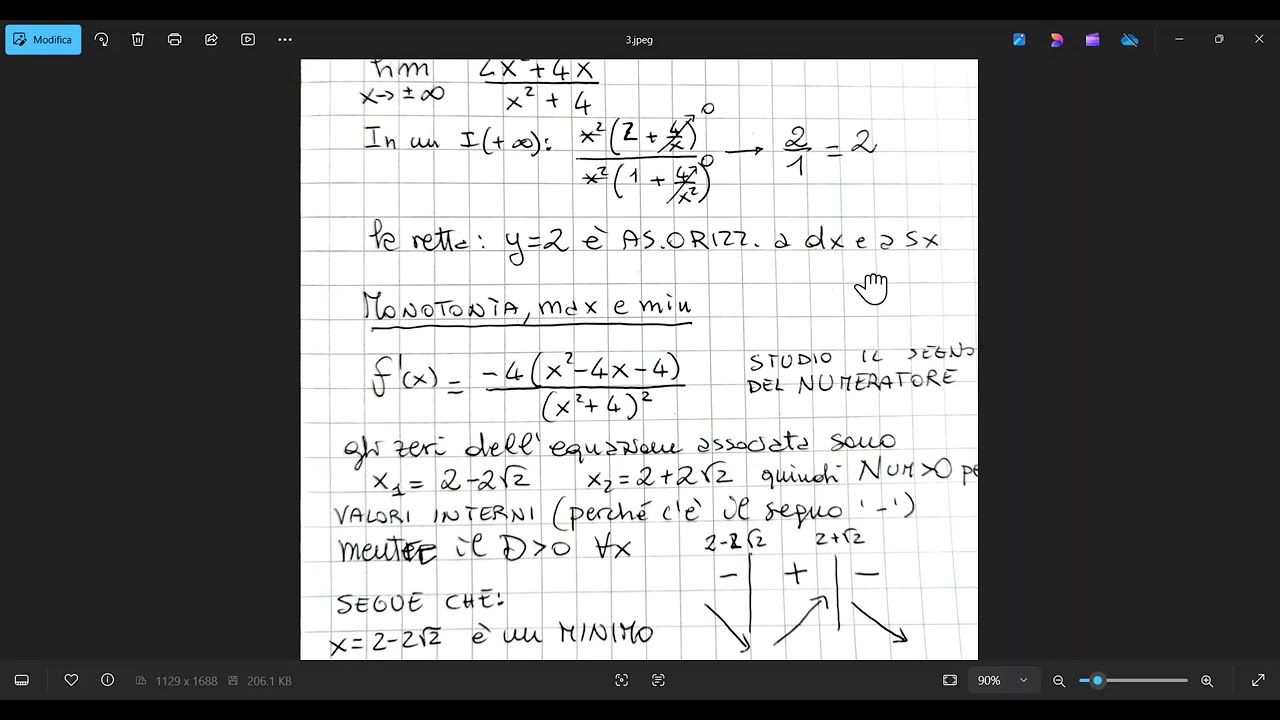 Modifica
3.jpeg
lim 2x²+4x
x→±∞ x²+4
In un I(+∞): x²(2+4/x)⁰ / x²(1+4/x²)⁰ → 2/1 = 2
la retta: y=2 è AS.ORIZZ. a dx e a sx
MONOTONIA, max e min
f'(x) = -4(x²-4x-4) / (x²+4)²
STUDIO IL SEGNO
DEL NUMERATORE
gli zeri dell'equazione associata sono
x₁= 2-2√2 x₂=2+2√2 quindi NUM>0 pe
VALORI INTERNI (perché c'è il segno '-')
mentre il D>0 ∀x
2-2√2 2+√2
- + -
SEGUE CHE:
x=2-2√2 è un MINIMO
1129 x 1688 206.1 KB
90%